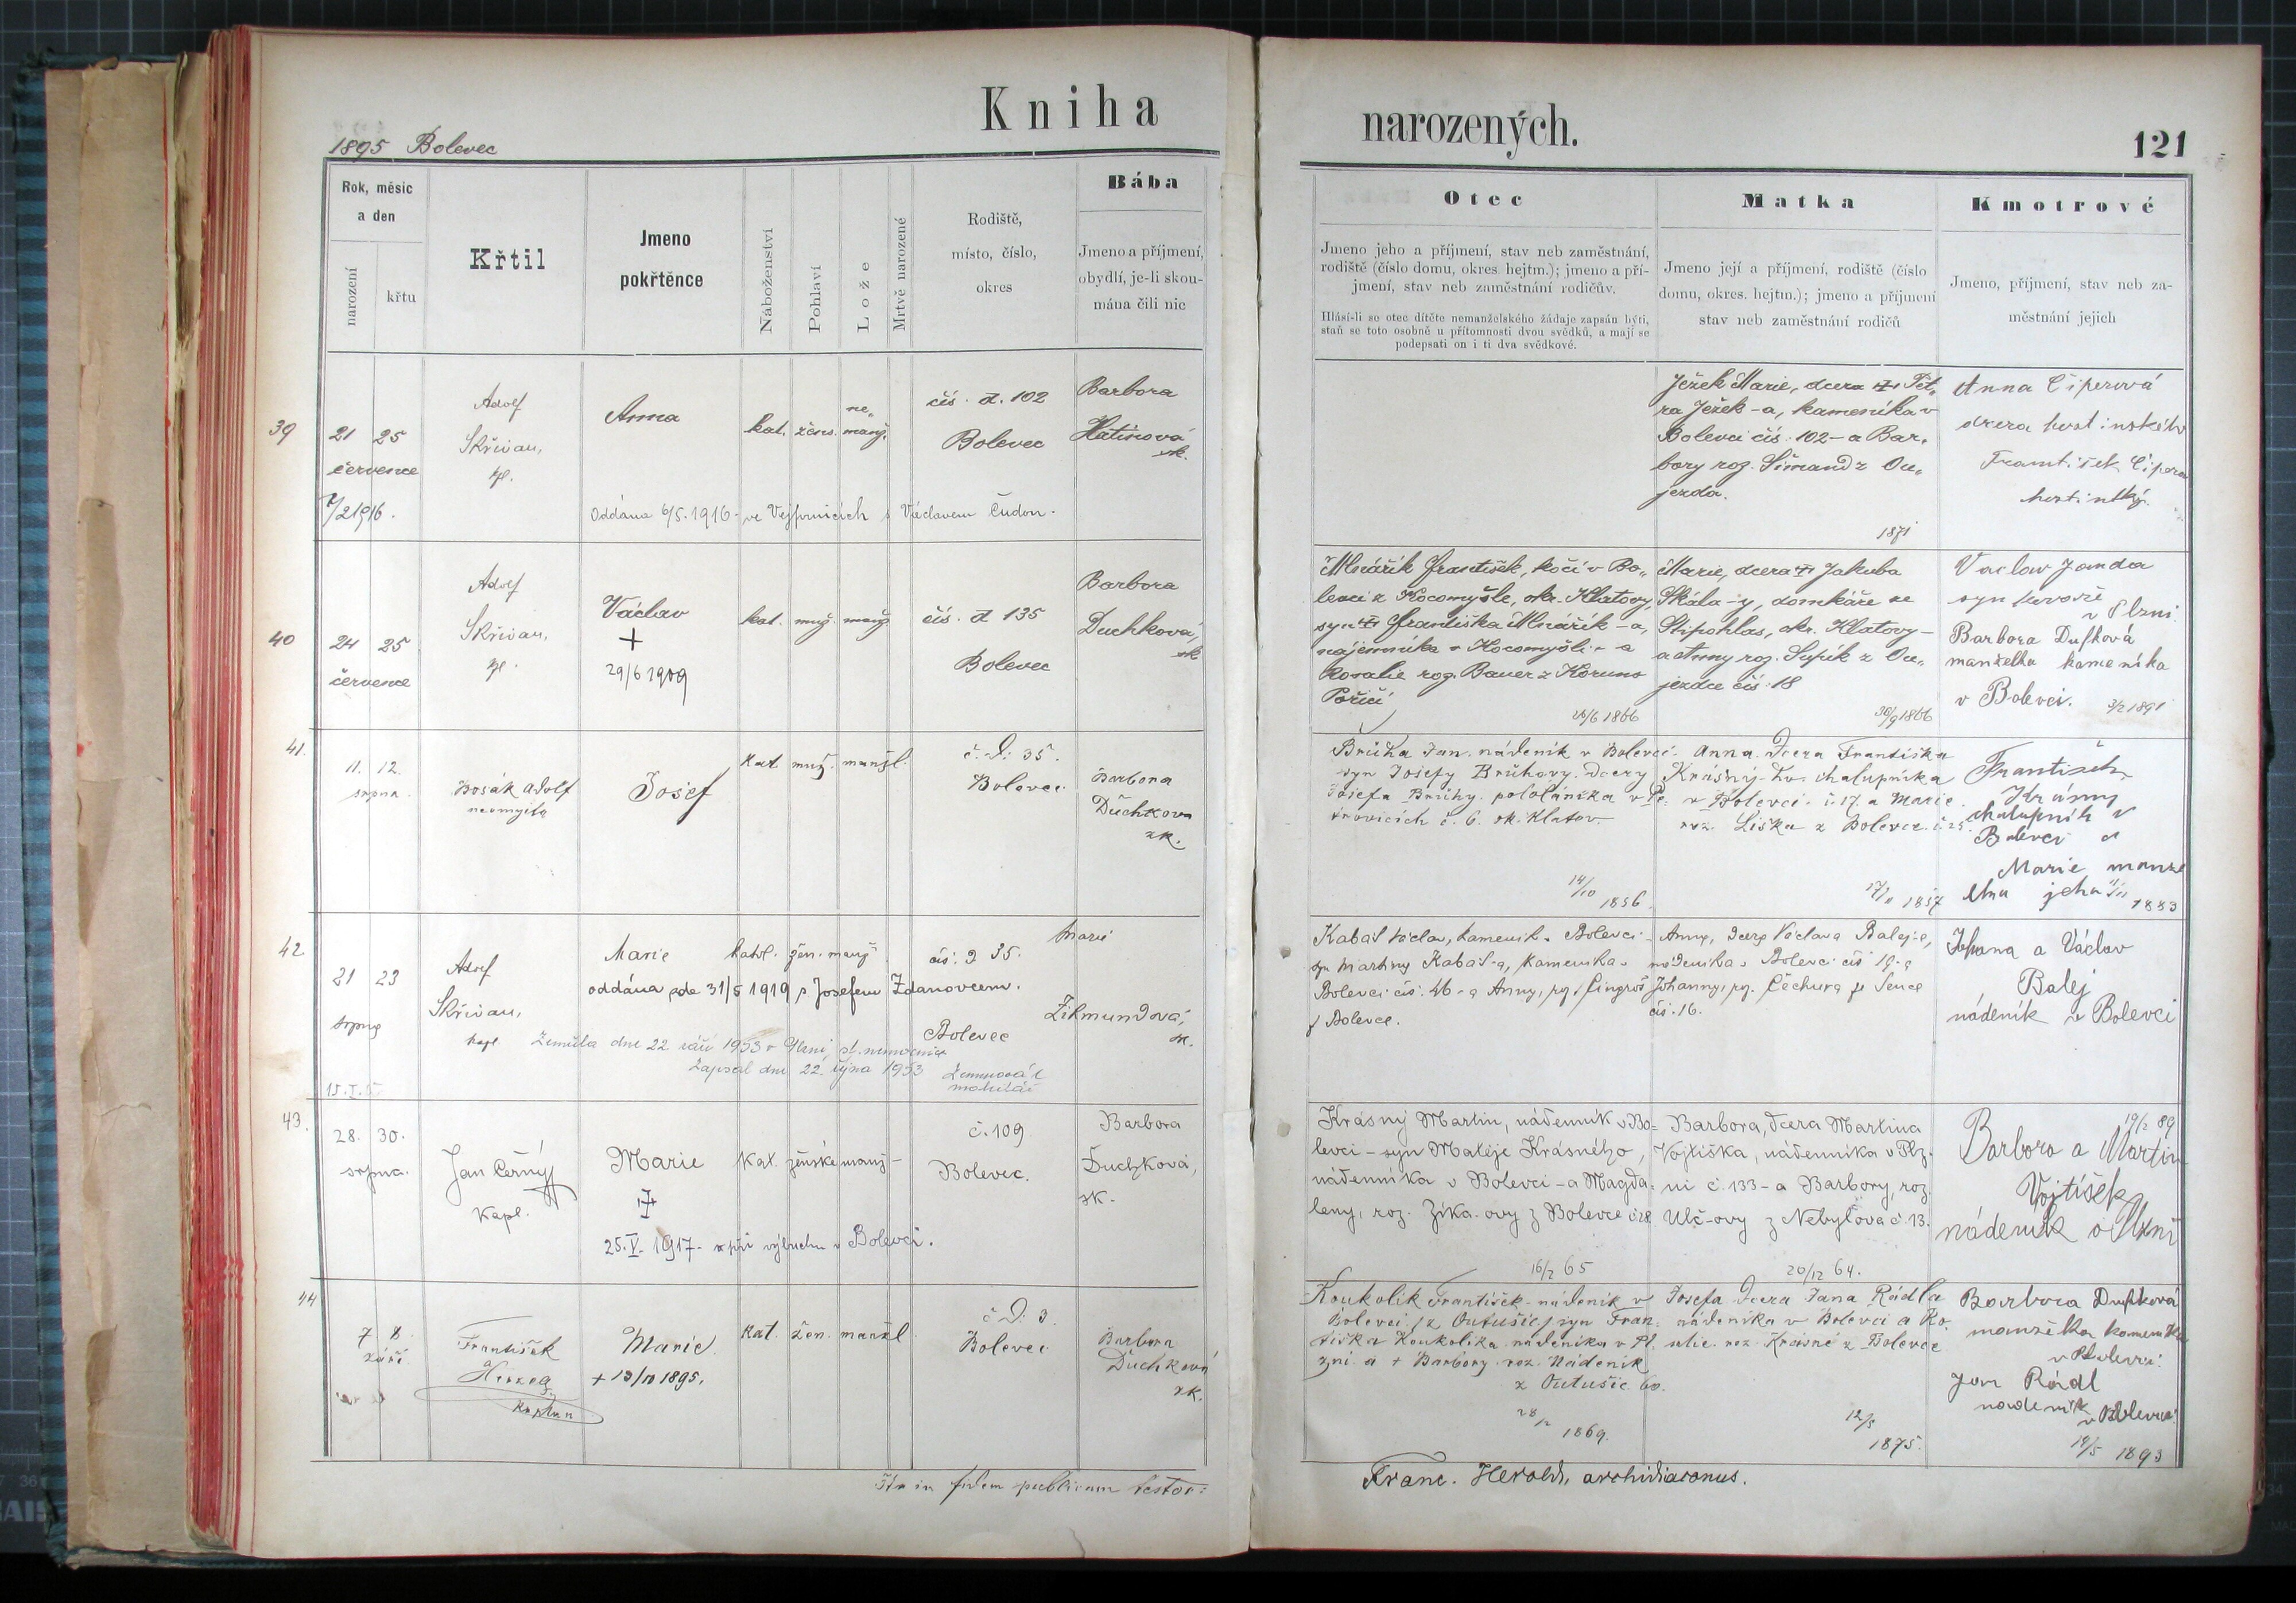 Kniha
narozených.
1895 Bolevec
121
Rok, měsíc
a den
narození
křtu
Křtil
Jmeno
pokřtěnce
Náboženství
Pohlaví
Lože
Mrtvě narozené
Rodiště,
místo, číslo,
okres
Bába
Jmeno a příjmení,
obydlí, je-li skou-
mána čili nic
Otec
Jmeno jeho a příjmení, stav neb zaměstnání,
rodiště (číslo domu, okres hejtm.); jmeno a pří-
jmení, stav neb zaměstnání rodičův.
Hlásí-li se otec dítěte nemanželského žádaje zapsán býti,
staň se toto osobně u přítomnosti dvou svědků, a mají se
podepsati on i ti dva svědkové.
Matka
Jmeno její a příjmení, rodiště (číslo
domu, okres. hejtm.); jmeno a příjmení
stav neb zaměstnání rodičů
Kmotrové
Jmeno, příjmení, stav neb za-
městnání jejich
39
21 25
července
Adolf
Skřivan,
Anna
kat. žens. ne„
manž.
čís. d. 102
Bolevec
Barbora
Hatinová
zk.
Oddána 6/5. 1916. ve Vejprnicích s Václavem Čudon.
Ježek Marie, dcera Pet„
ra Ježek-a, kameníka v
Bolevci čís. 102 - a Bar„
bory roz. Šimand z Ou„
jezda.
1871
Anna Čiperová
dcera hostinského
František Čipera
hostinský.
40
24 25
července
Adolf
Skřivan,
Václav
+
29/6 1909
kat. muž. manž.
čís. d 135
Bolevec
Barbora
Duchková,
zk
Mlnářík František, kočí v Bo„
levci z Kocomyšle, okr. Klatovy,
syn Františka Mlnářík-a,
nájemníka v Kocomyšli - a
Rosalie roz. Bauer z Koruno
Poříčí
26/6 1866
Marie, dcera Jakuba
Skála-y, domkáře ze
Stipohlas, okr. Klatovy -
a Anny roz. Supík z Ou„
jezdce čís. 18
30/9 1866
Vaclav Janda
syn
v Plzni
Barbora Dufková
manželka kameníka
v Bolevci. 3/2 1891
41.
11. 12.
srpna.
Bosák Adolf
Josef
kat. muž. manžl.
č. d. 35.
Bolevec
Barbora
Duchkova
zk.
Brůha Jan. nádeník v Bolevci.
syn Josefy Brůhovy. dcery
Josefa Brůhy. pololáníka v Pe=
trovicích č. 6. ok. Klatov.
14/10 1856.
Anna. dcera Františka
Krásný-ho. chalupníka
v Bolevci. č. 17. a Marie.
roz. Liška z Bolevce. č. 25.
1857
František
Krásny
chalupník v
Bolevci a
Marie manže
lka jeho
1883
42.
21 23
srpna
Adolf
Skřivan,
kapl.
Marie
katol. žen. manž
čís. d 35.
Bolevec
Marie
Zikmundová,
zk.
oddána dne 31/5 1919 s Josefem Zdanovcem.
Zemřela dne 22 září 1953 v Plzni, st. nemocnice
Zapsal dne 22. října 1953
Kabát Václav, kameník v Bolevci
syn Martiny Kabát-a, kameníka v
Bolevci čís. 46 - a Anny, roz. Cingroš
z Bolevce.
Anna, dcera Václava Balej-e,
nádeníka v Bolevci čís 19 - a
Johanny, roz. Čechura ze Sence
čís. 16.
Johana a Václav
Balej
nádeník v Bolevci
43.
28. 30.
srpna.
Jan Černý
kapl.
Marie
kat. ženské manž-
č. 109
Bolevec.
Barbora
Duchková,
zk.
25. V. 1917. při výbuchu v Bolevci.
Krásný Martin, nádenník v Bo=
levci - syn Matěje Krásného,
nádenníka v Bolevci - a Magda=
leny, roz. Zíka-ovy z Bolevce č. 28.
16/2 65
Barbora, dcera Martina
Vojtíška, nádenníka v Plz-
ni č. 133 - a Barbory, roz.
Ulč-ovy z Nebylova č. 13.
20/12 64.
19/2 89
Barbora a Martin
Vojtíšek
nádeník v Plzni
44
7 8.
září.
František
Herzog
kaplan
Marie.
+ 13/10 1895.
kat. žen. manžl.
č. d. 3.
Bolevec
Barbora
Duchková
zk.
Koukolík František. nádeník v
Bolevci / z Outušic / syn Fran=
tiška Koukolíka nádeníka v Pl=
zni. a + Barbory roz. Nádeník
z Outušic 60.
28/12 1869.
Josefa dcera Jana Rádla
nádeníka v Bolevci a Ro
zalie. roz. Krásné z Bolevce
12/5 1875.
Barbora Dufková
manželka kameníka
v Bolevci.
Jan Rádl
nádeník
v Bolevci.
1893
Ita in fidem publicam testor:
Franc. Herold, archidiaconus.